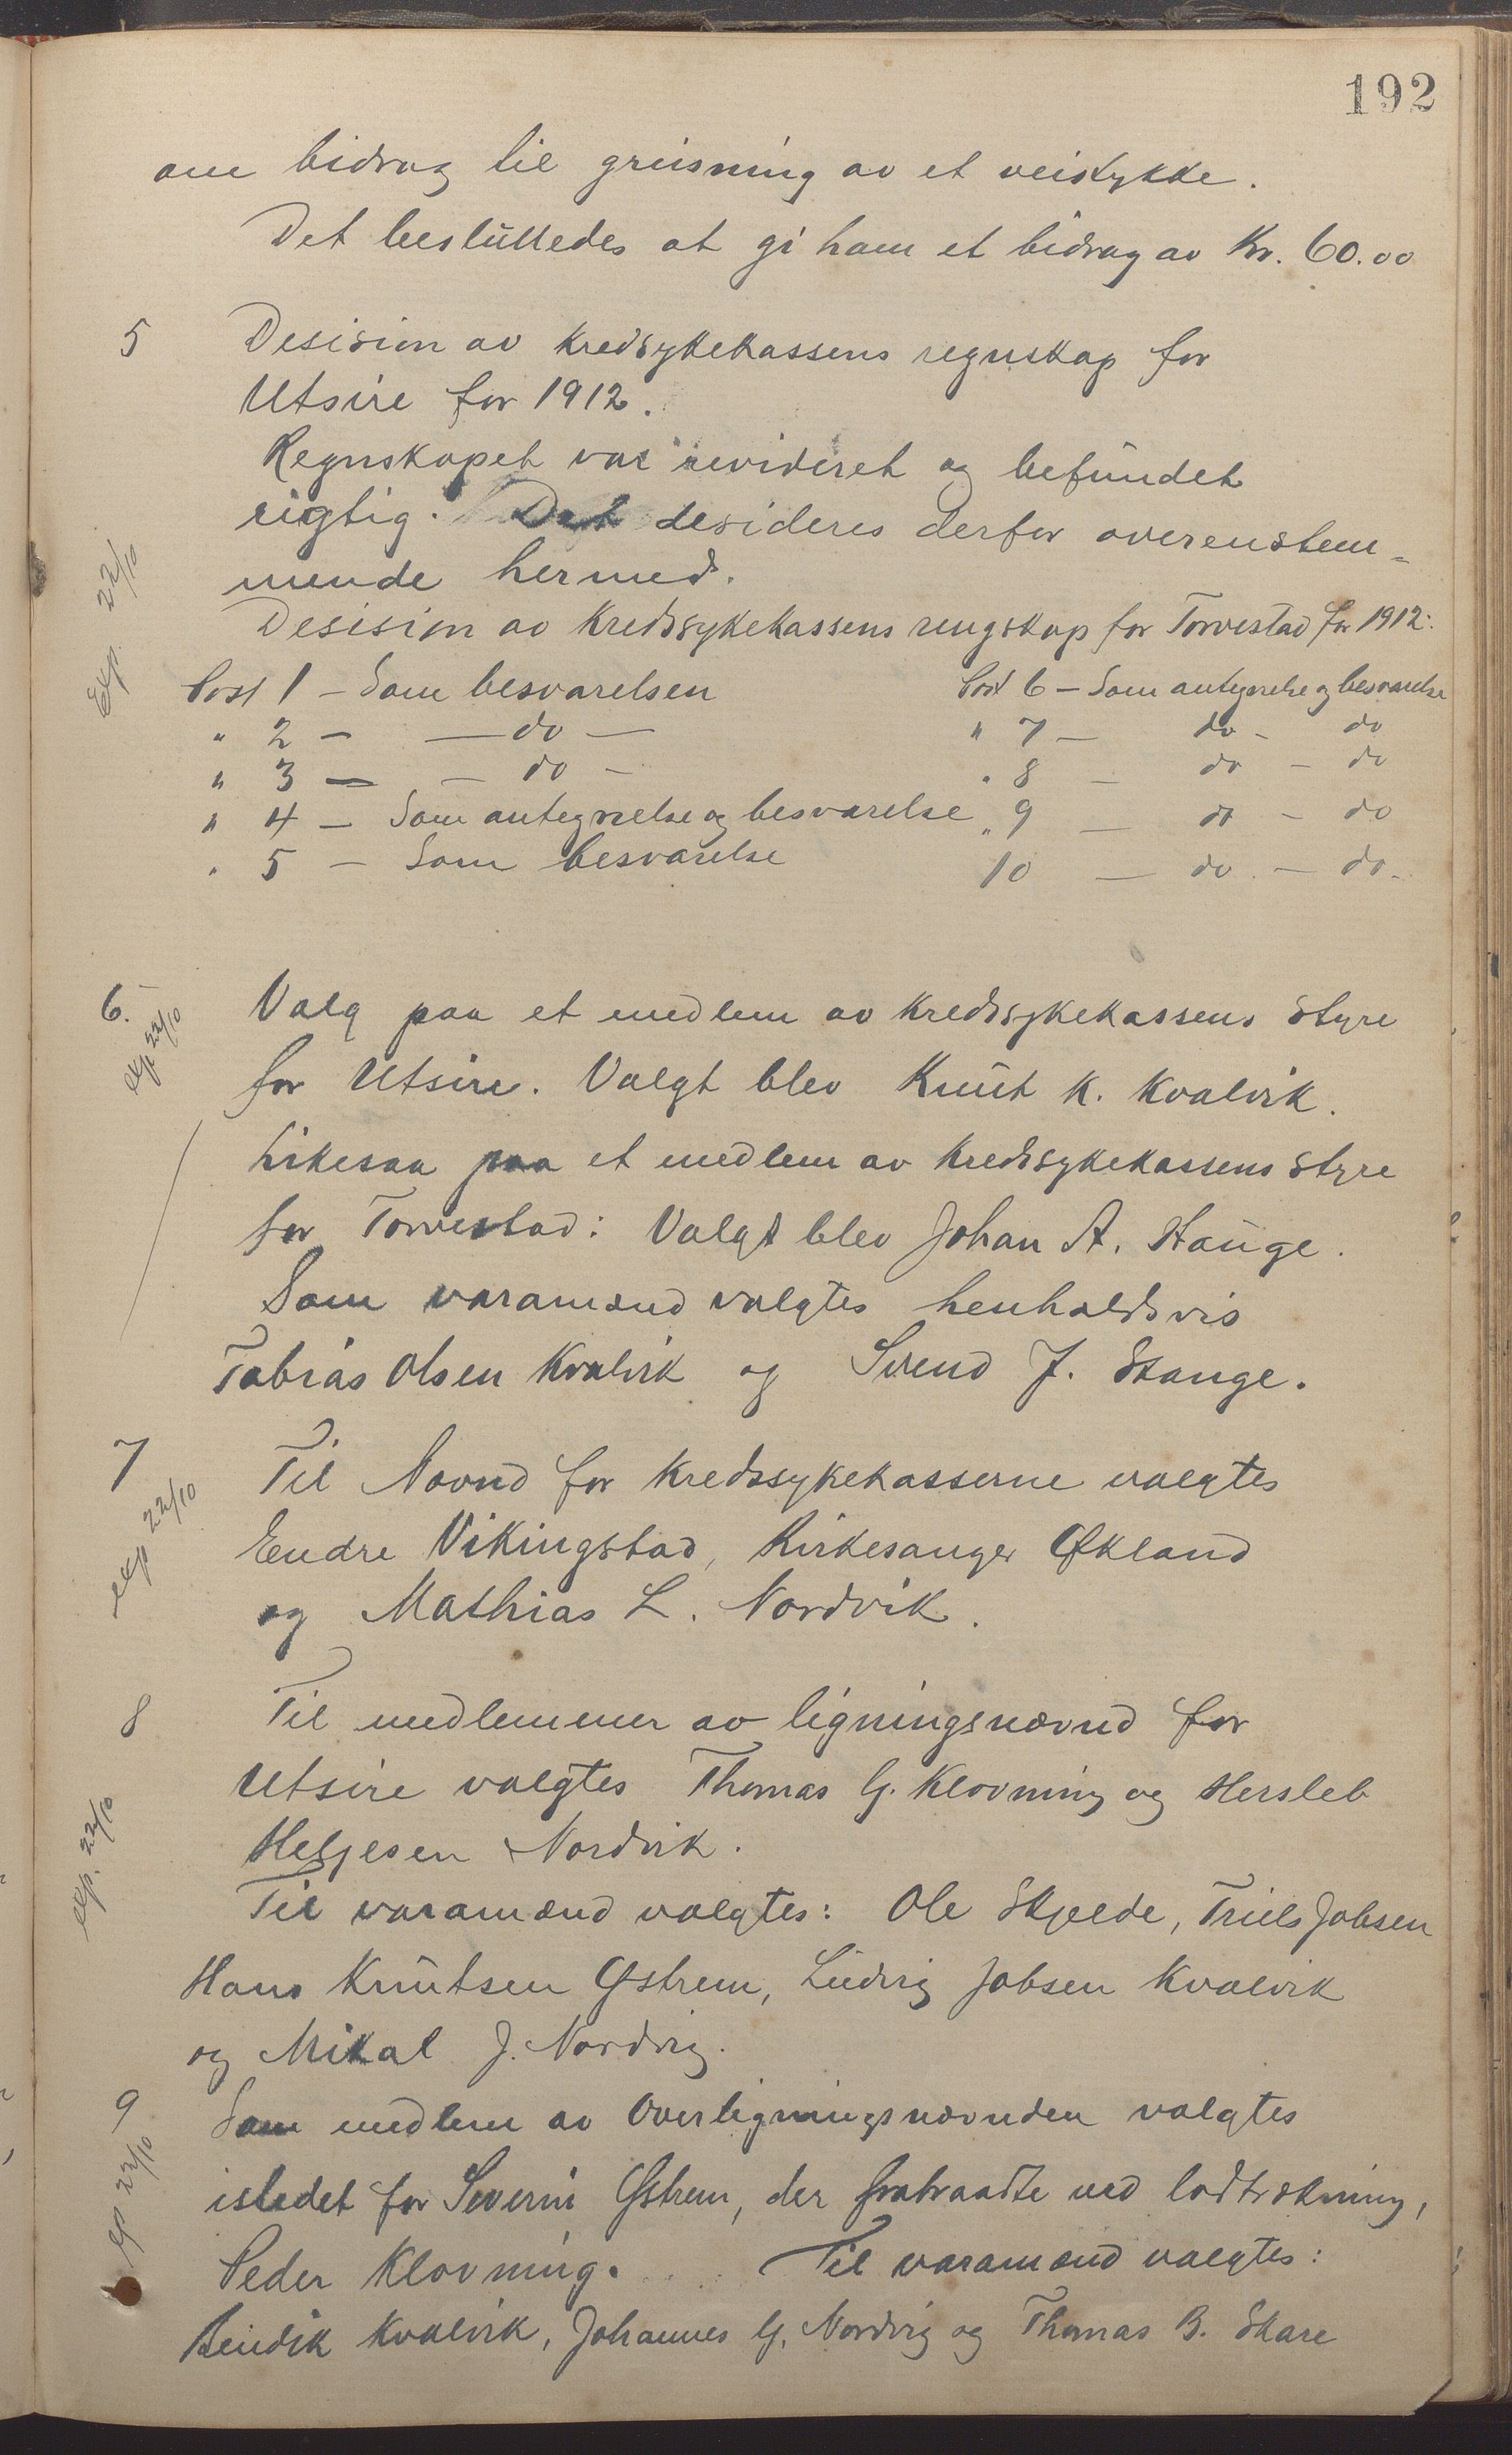 192
om bidrag til grusning av et veistykke.
Det besluttedes at gi ham et bidrag av Kr. 60.00
5 Desision av kredsykekassens regnskap for
Utsire for 1912.
Regnskapet var revideret og befundet
rigtig. Det desideres derfor overenstem-
mende hermed.
Exp. 22/10
Desision av kredssykekassens rengskap for Torvestad for 1912:
Post 1 – Som besvarelsen Post 6 – Som antegnelse og besvarelse
" 2 – — do — " 7 – do – do
" 3 — – do – " 8 – do – do
" 4 – Som antegnelse og besvarelse " 9 – do – do
" 5 – Som besvarelse 10 – do. – do.
6. Valg paa et medlem av kredssykekassens styre
exp. 22/10
for Utsire. Valgt blev Knut K. Kvalvik.
Likesaa paa et medlem av kredssykekassens styre
for Torvestad: Valgt blev Johan A. Hauge.
Som varamænd valgtes henholdsvis
Tobias Olsen Kvalvik og Svend J. Stange.
7 Til Nævnd for kredssykekasserne valgtes
exp 22/10
Endre Vikingstad, Kirkesanger Økland
og Mathias L. Nordvik.
8 Til medlemmer av ligningsnævnd for
Utsire valgtes Thomas G. Klovning og Hersleb
exp. 22/10
Helgesen Nordvik.
Til varamænd valgtes: Ole Skjelde, Truls Jobsen
Hans Knutsen Østrem, Ludvig Jobsen Kvalvik
og Mikal J. Nordvig.
9 Som medlem av Overligningsnævnden valgtes
exp 22/10
istedet for Severin Østrem, der fratraadte ved lodtrækning,
Peder Klovning. Til varamænd valgtes:
Bendik Kvalvik, Johannes G. Nordvig og Thomas B. Skare